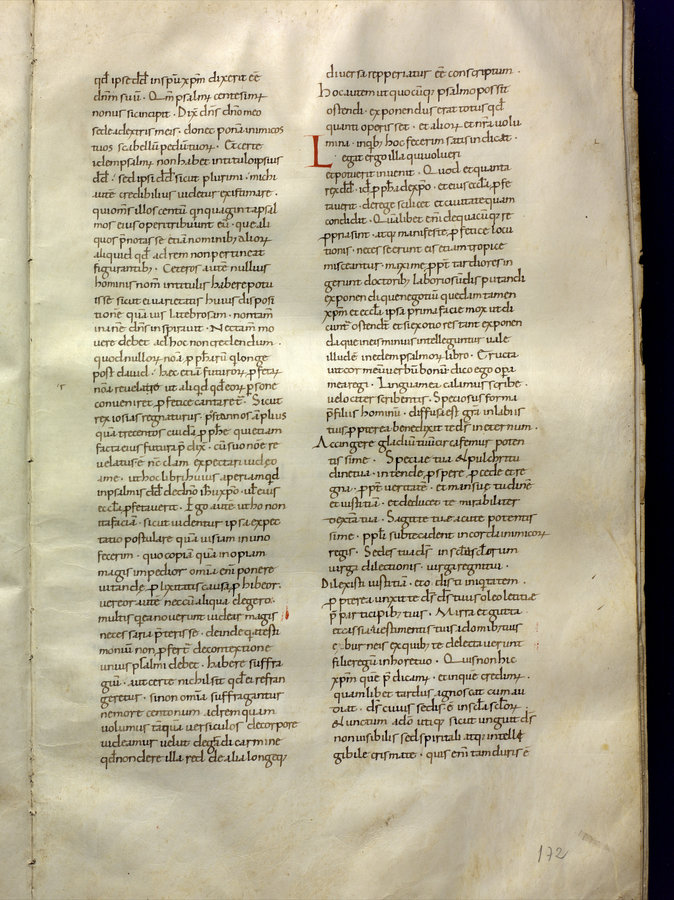 qđ ipse dđ̄ in spū xp̄m dixerit eē
dn̄m suū · Qm̄ psalmꝝ centesimꝰ
nonus sic incipit · Dix̄ dn̄s dn̄o meo
sede a dextris meis · donec ponā inimicos
tuos scabellū pedū tuoꝝ · Et certe
idem psalmꝰ non habet in titulo ipsius
dđ̄ · sed ipsi dđ̄ sicut plurimi · mihi
autē credibilius uidetur existimare ·
qui om̄s illos centū quinquaginta psal
mos eius operi tribuunt eū · que ali
quos p̄notasse etiā nominibꝫ alioꝝ
aliquid qđ ad rem non pertineat
figurantibꝫ · Ceteros autē nullius
hominis nom̄ in titulis habere potu
isse sicut ei uarietatis huius disposi
tionē quāuis latebrosam · non tam̄
inane dn̄s inspirauit · Nec tam̄ mo
uere debet ad hoc non credendum ·
quod nulloꝝ noīa ꝓphaꝝ q̄ longe
post dauid · hec etiā futuroꝝ ꝓfetaꝝ
noīa reuelasse ut aliqđ qđ eoꝝ psone
conueniret ꝓfetice cantaret · Sicut
rex iosias regnaturus · p̄st annos āplius
quā trecentos cuidā ꝓphe qui etiam
facta eius futura p̄dix̄ · cū suo noīe re
uelatus ē
ne hoc libri huius aperiam qđ
in psalmis dđ̄ de dn̄o ihū xp̄o · uł eius
eccła ꝓfetauerit · Ego autē ut hoc non
ita faciā · sicut uidentur ipsa expec
tatio postulare quā uis iam in uno
fecerim · quo copiā quā inopiam
magis impedior omīa em̄ ponere
uitande ꝓlixitatis causa ꝓhibeor ·
uereor autē ne cū aliqua elegero ·
multis q̄ ea nouerunt uidear magis
necessaria p̄terisse · deinde q̄ a testi
moniū non ꝓfert̄ de contextione
unius psalmi debet · habere suffra
giū · aut certe nichil sit qđ ei refran
geretur · si non omīa suffragantur
ne more centonum ad rem quam
uolumus tāquā uersiculos decorpore
uideamus uelut de grādi carmine
qđ non de re illa sed de alia longeqꝫ
diuersa repperiatur eē conscriptum ·
Hoc autem ut quocūqꝫ psalmo possit
ostendi · exponendus erat totus qđ
quanti operis sit · et alioꝝ et nr̄a uolu
mina · in qbꝫ hoc fecerim satis indicat ·
Legat ergo illa qui uoluerit
et potuerit inuenit · Quod et quanta
rex dđ̄ · idē ꝓpha de xp̄o · et eius eccła ꝓfe
tauerit · de rege scilicet et ciuitate quam
condidit · Qualibet em̄ de quacūqꝫ re
ꝓprie sint atqꝫ manifeste ꝓfetice locu
tiones · necesse erunt eis etiam tropice
misceantur · maxime ꝓpt̄ tardiores in
gerunt doctoribꝫ laboriosū disputandi
exponendique negotiū quedam tamen
xp̄m et eccłā ipsa prima facie mox ut di
cunt̄ ostendt̄ · et si ex otio restant exponen
da que in eis minus intelleguntur uale
illud ē in eodem psalmoꝝ libro · Eructa
uit cor meū uerbū bonū dico ego opa
mea regi · Lingua mea calamus scribe ·
uelociter scribentis · Speciosus forma
p̄ filiis hominū · diffusa est gr̄a in labiis
tuis ꝓpterea benedixit te dī̄ in eternum ·
Accingere gladiū tuū circa femus poten
tissime · Specie tua & pulchritu
dine tua · intende ꝓspere ꝓcede et re
gna · ꝓpt̄ ueritatē · et mansuetudinē
et iustitiā · et deducet te mirabiliter
dextera tua · Sagitte tue acute potentis
sime · ppłi subte cadent in corda inimicoꝝ
regis · Sedes tua dī̄ in secłm secłorum
uirga directionis · uirga regni tui ·
Dilexisti iustitiā · et odisti iniquitatem ·
ꝓpterea unxit te dī̄ dī̄ tuus oleo letitie
p̄ participibꝫ tuis · Mirra et gutta
et cassia a uestimentis tuis a domibꝫ
eburneis ex quibꝫ te delectauerunt
filie regū in honore tuo · Quis non hic
xp̄m que p̄dicam̄ · et in que credim̄ ·
quamlibet tardus agnoscat cum au
diat · dī̄ cuius sedis ē in secła secłoꝝ ·
& unctum a dō utiqꝫ sicut unguit dī̄
non uisibilis sed spiritali atqꝫ intelle
gibile crismate · quis em̄ tam durisē
172